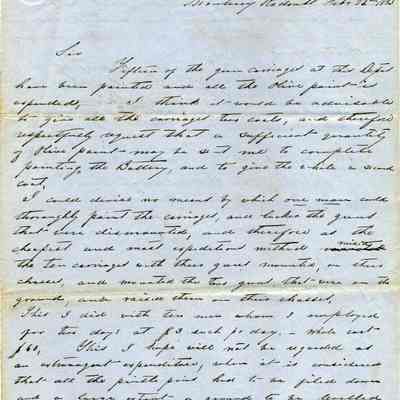 Sir
Fifteen of the gun carriages at this Depot
have been painted and all the Olive paint is
expended, I think it would be advisable
to give all the carriages two coats, and therefore
respectfully request that a sufficient quantity
of Olive paint may be sent me to complete
painting the Battery, and to give the whole a second
coat,
I could devise no means by which one man could
thoroughly paint the carriages, and besides the guns
that were dismounted, and therefore as the
cheapest and most expeditious method raised
the ten carriages with their guns mounted, on their
chasses, and mounted the two guns that were on the
ground, and raised them on their chasses,
This I did with two men whom I employed
for ten days at $3 each pr day, - whole cost
$60, This I hope will not be regarded as
an extravagant expenditure, when it is considered
that all the pintle had to be filed down
and a large extent of ground to be levelled